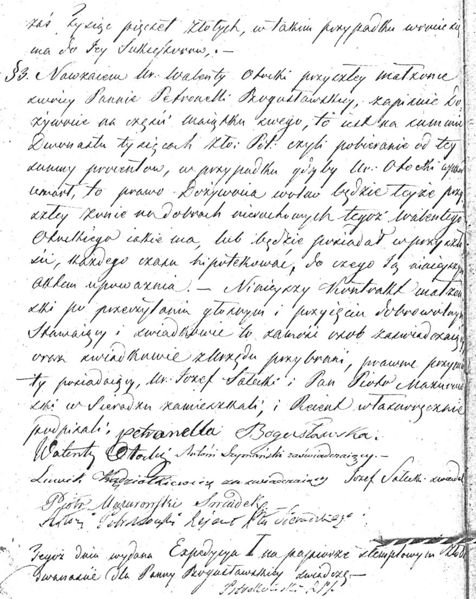 zaś tysięc pięćset złotych, w takim przypadku wrócić
ma do Jey Sukcessorow. —
§3. Nawzaiem Ur. Walenty Otocki przyszłey małżonce
swoiey Pannie Petronelli Bogusławskiey, zapisuie Do
żywocie na części maiątku swego, to iest na summie
Dwunastu tysięcach Zło: Pol: czyli pobieranie od tey
summy procentow, w przypadku gdyby Ur. Otocki
umarł, to prawo Dożywocia wolno będzie teyże przy
szłey żonie na dobrach nieruchomych tegoż Walentego
Otockiego iakie ma, lub będzie posiadał w przyszło
ści, każdego czasu hipotekować, do czego Ją ninieyszym
Aktem upoważnia. — Ninieyszy Kontrakt małżeń
ski po przeczytaniu głośnym i przyięciu dobrowolnym
Stawaiący i świadkowie to samość osob zaświadczaiący
oraz świadkowie z Urzędu przybrani, prawne przymio
ty posiadaiący, Ur. Jozef Salecki i Pan Piotr Mazurow
ski w Sieradzu zamieszkali, i Reient własnoręcznie
podpisali. Petronella Bogusławska.
Walenty Otocki, Antoni Szymański zaświadczaiący. —
Ludwik za świadczaiący Jozef Salecki świadek
Piotr Mazurowski Swiadek
Reient Ptu Sieradzkiego.
Tegoż dnia wydana Expedycya I na papierze stemplowym
dwunastu dla Panny Bogusławskiey świadczę —